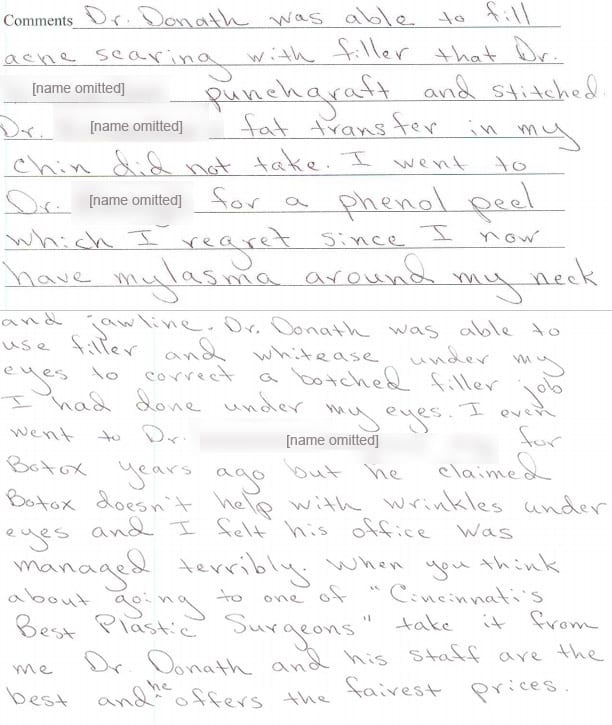 Comments Dr. Donath was able to fill
acne scaring with filler that Dr.
[name omitted] punchgraft and stitched.
Dr. [name omitted] fat transfer in my
chin did not take. I went to
Dr. [name omitted] for a phenol peel
which I regret since I now
have mylasma around my neck
and jawline. Dr. Donath was able to
use filler and whitease under my
eyes to correct a botched filler job
I had done under my eyes. I even
went to Dr. [name omitted] for
Botox years ago but he claimed
Botox doesn't help with wrinkles under
eyes and I felt his office was
managed terribly. When you think
about going to one of "Cincinnati's
Best Plastic Surgeons" take it from
me Dr. Donath and his staff are the
best and he offers the fairest prices.